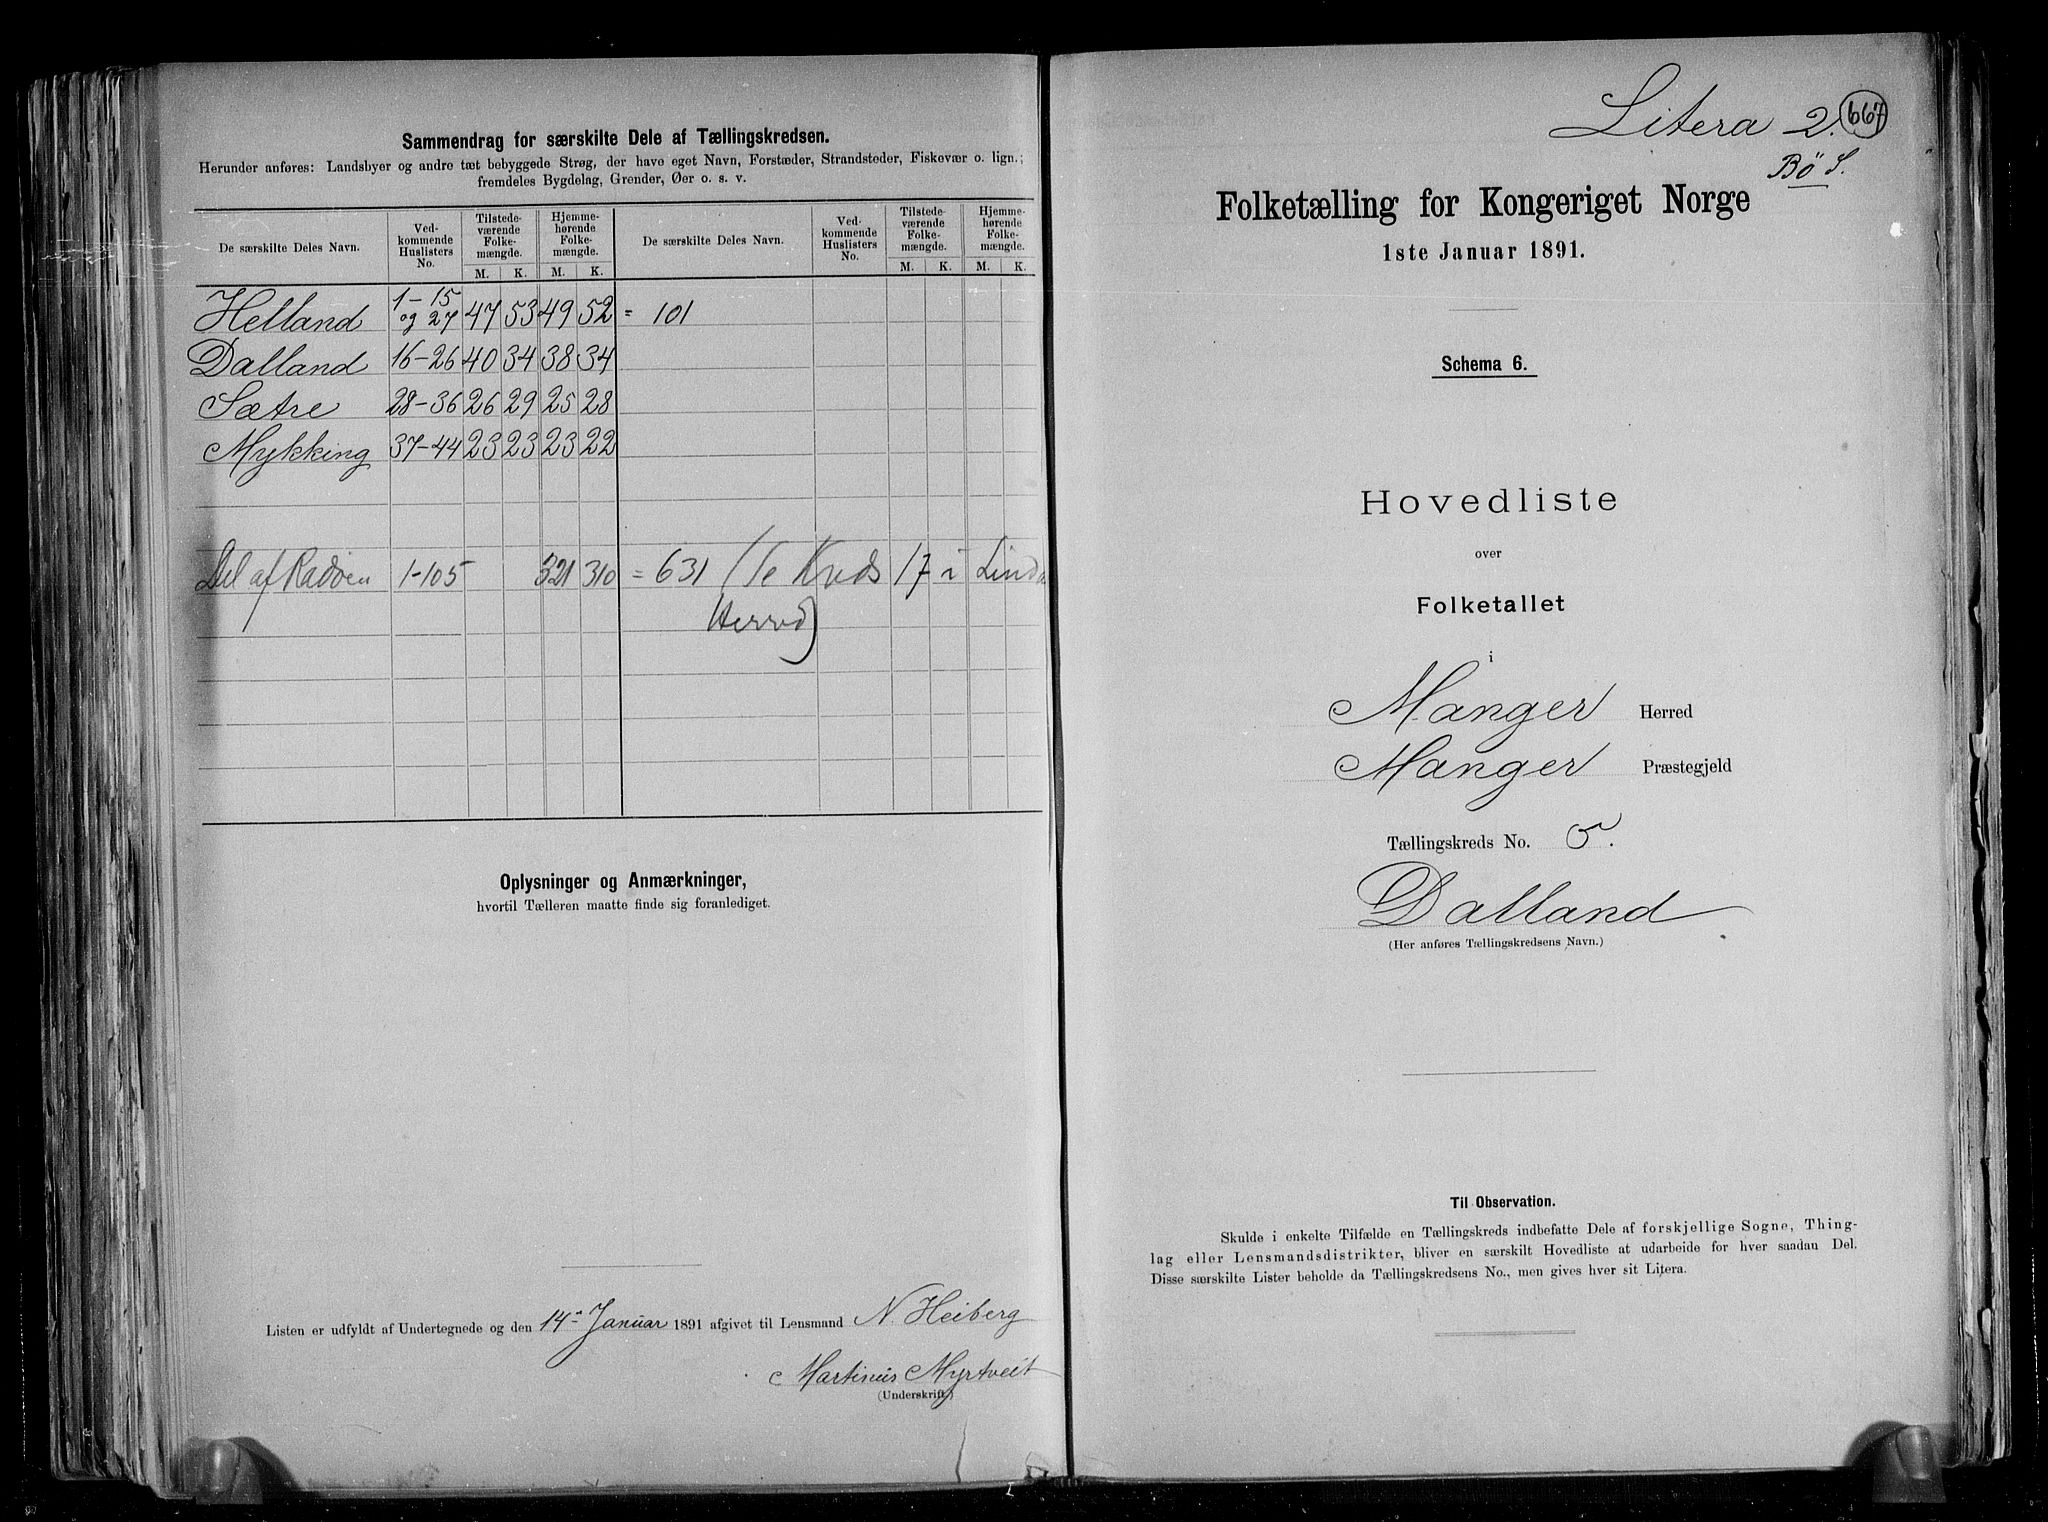 Sammendrag for særskilte Dele af Tællingskredsen.
Herunder anføres: Landsbyer og andre tæt bebyggede Strøg, der have eget Navn, Forstæder, Strandsteder, Fiskevær o. lign.;
fremdeles Bygdelag, Grender, Øer o. s. v.
De særskilte Deles Navn. Ved-kommende Huslisters No. Tilstede-værende Folke-mængde. Hjemme-hørende Folke-mængde. De særskilte Deles Navn. Ved-kommende Huslisters No. Tilstede-værende Folke-mængde. Hjemme-hørende Folke-mængde.
M. K. M. K. M. K. M. K.
Helland 1-15 og 27 47 53 49 52 = 101
Dalland 16-26 40 34 38 34
Sætre 28-36 26 29 25 28
Mykking 37-44 23 23 23 22
Del af Radöen 1-105 321 310 = 631 (Se Kreds 17 i Lindås
Herred)
Oplysninger og Anmærkninger,
hvortil Tælleren maatte finde sig foranlediget.
Listen er udfyldt af Undertegnede og den 14de Januar 1891 afgivet til Lensmand N. Heiberg
Martinus Myrtveit
(Underskrift.)
Litera 2. 667
Bö S.
Folketælling for Kongeriget Norge
1ste Januar 1891.
Schema 6.
Hovedliste
over
Folketallet
i
Manger Herred
Manger Præstegjeld
Tællingskreds No. 5.
Dalland
(Her anføres Tællingskredsens Navn.)
Til Observation.
Skulde i enkelte Tilfælde en Tællingskreds indbefatte Dele af forskjellige Sogne, Thing-
lag eller Lensmandsdistrikter, bliver en særskilt Hovedliste at udarbeide for hver saadan Del.
Disse særskilte Lister beholde da Tællingskredsens No., men gives hver sit Litera.